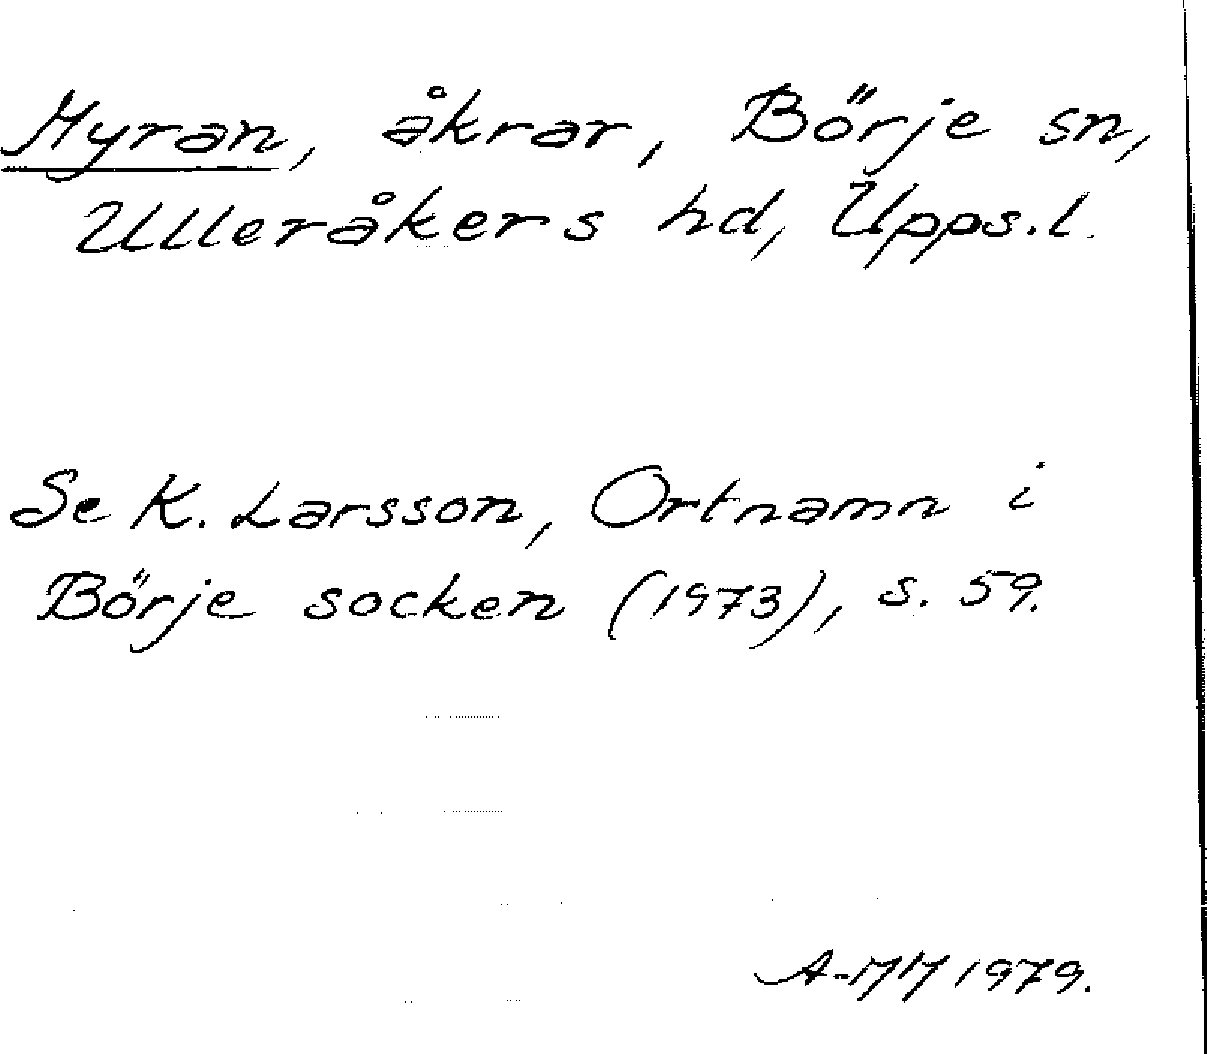 Myran, åkrar, Börje sn,
Ulleråkers hd, Upps.l.
Se K. Larsson, Ortnamn i
Börje socken (1973), s. 59.
A-MM 1979.